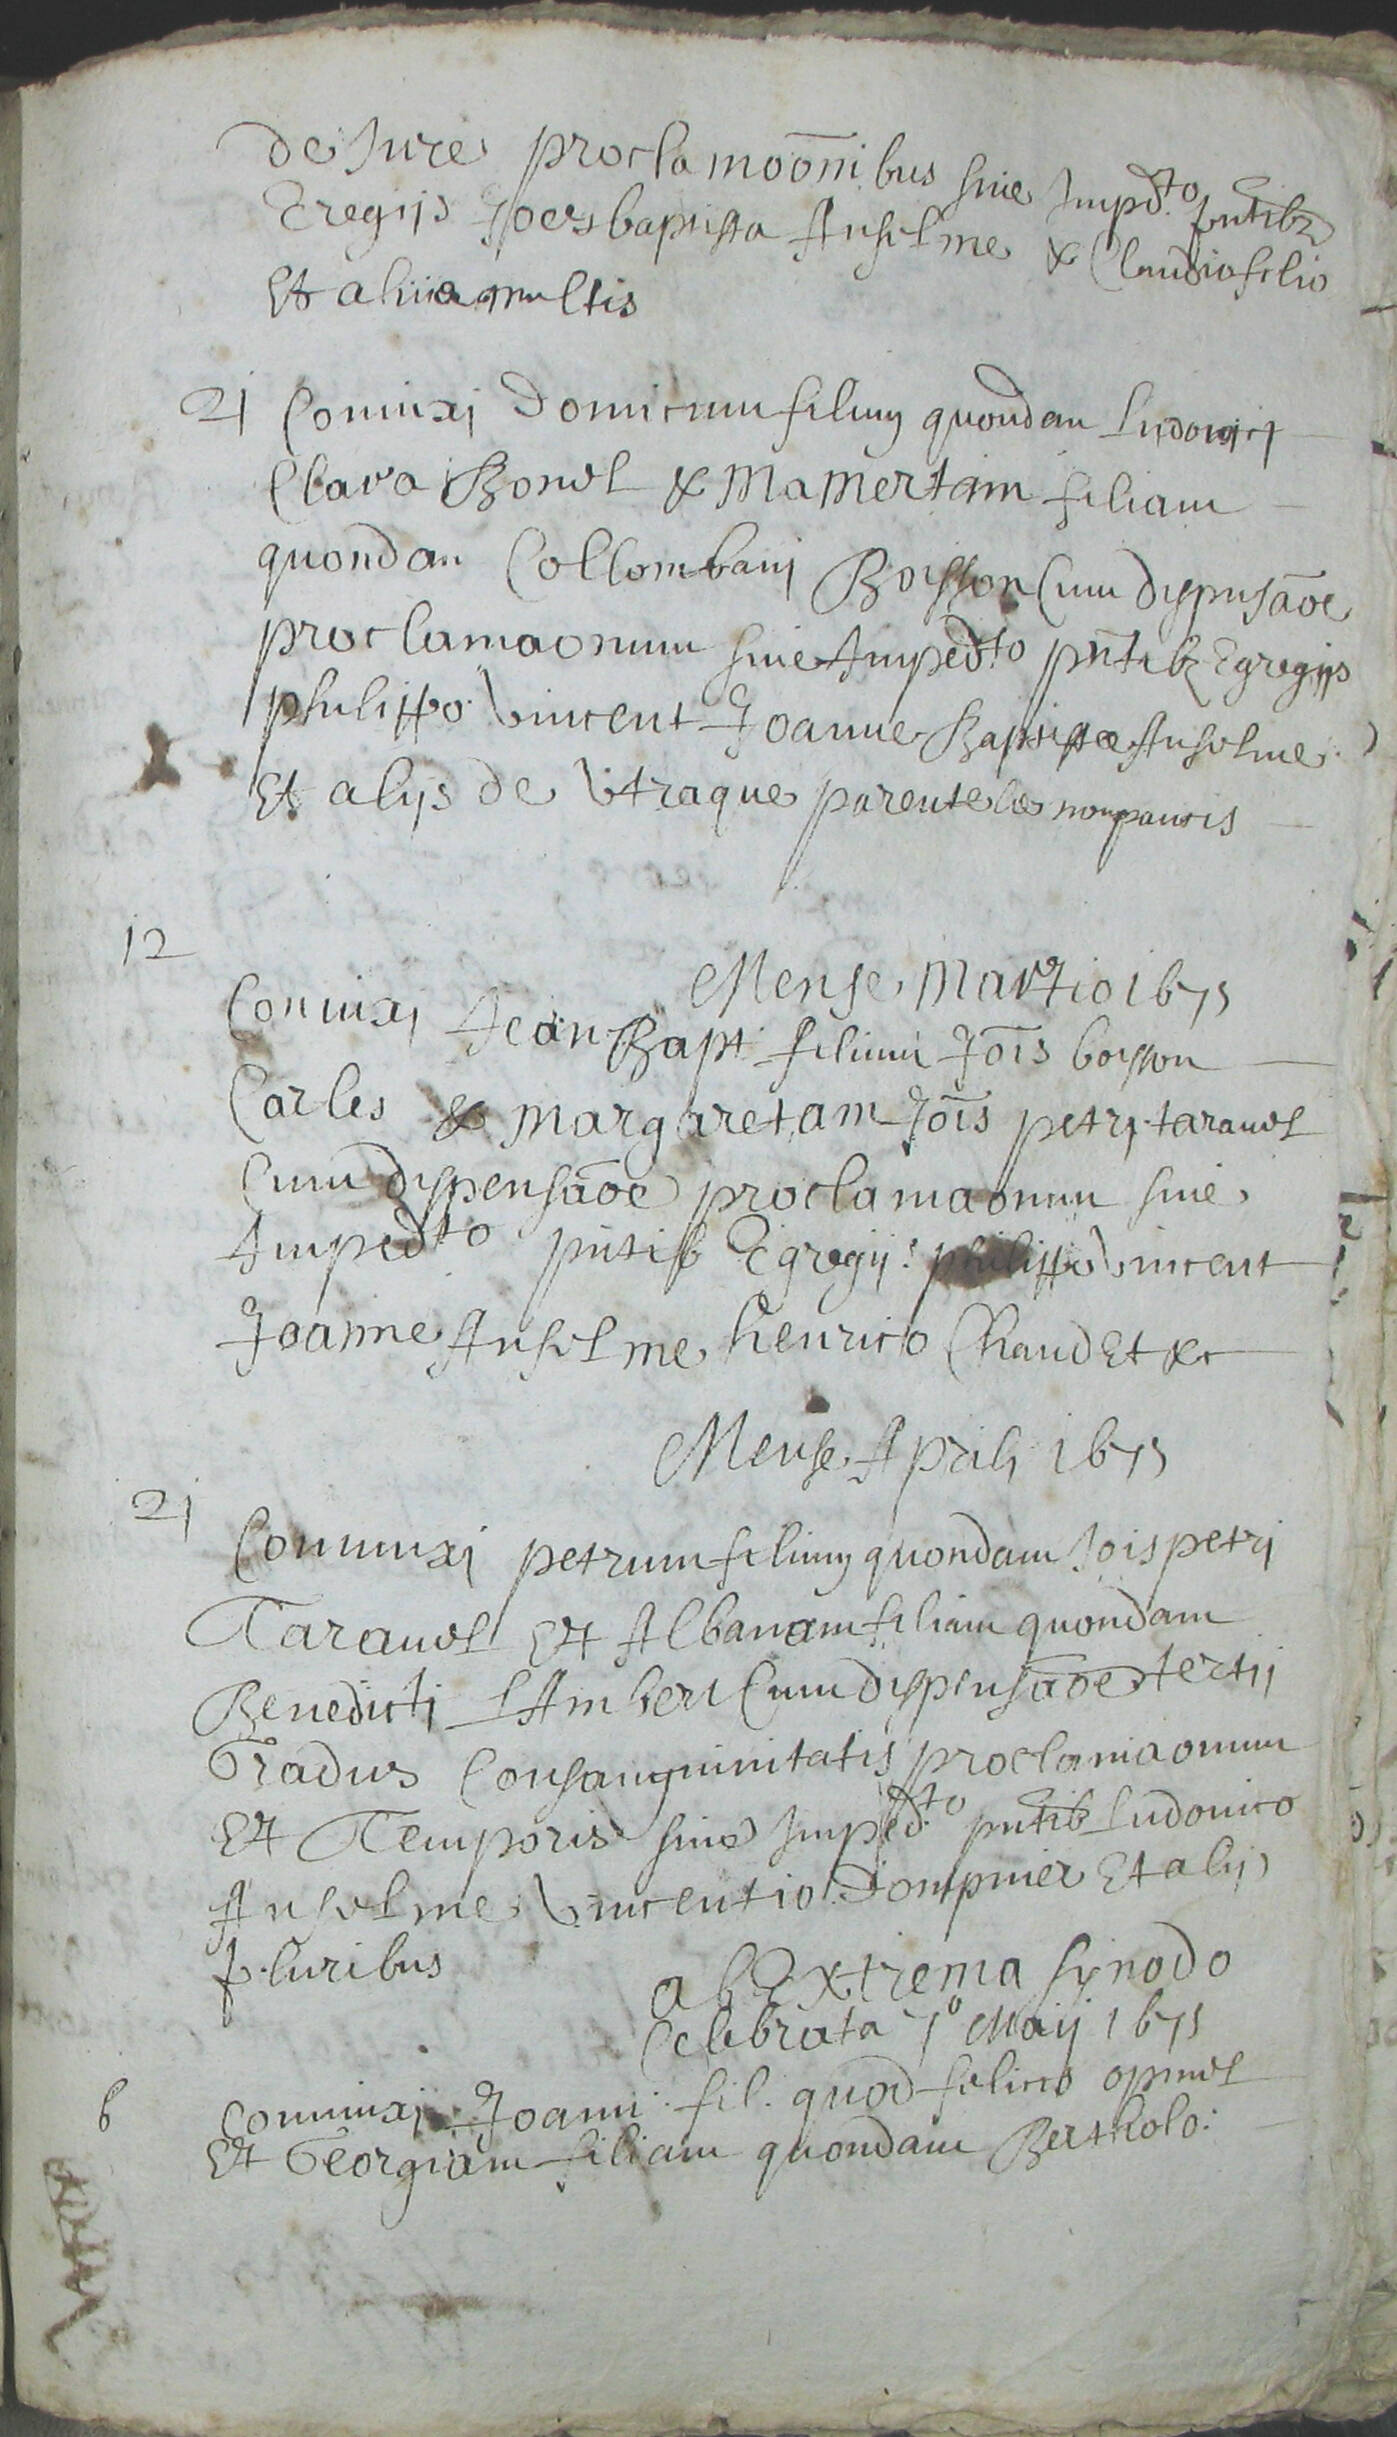 de Jure proclamoōnibus sine Impd.to pntibz
Eregijs Joes baptista Anselme & Claudio filio
Et aliis multis
21 Coniuxj Domicum filiuz quondan Ludovicj
Clara Bonel & Mamertam filiam
quondan Collombanj Boisson Cum dispensāoe
proclamaonum sine Impedto pntibz Egregijs
philippo Vincent Joanne Baptista Anselme
Et alijs de Vtraque parentela non paucis
12
Mense Martio 1675
Coniuxj Jean Bapt filium Jōis boisson
Carles & Margaretam Jōis petrj taravel
Cum dispensāoe proclamaonum sine
Impedto pntib Egregijs philippo Vincent
Joanne Anselme henrico Chaud Et &c
Mense Aprili 1675
21
Coniunxj petrum filiuz quondam Jois petrj
Taravel Et Albanam filiam quondam
Benedictj LAmbert Cum dispensāoe tertij
Gradus Consanguinitatis proclamaonum
Et Temporis sine Impedto pntib Ludovico
Anselme Vincentio Dompnier Et alijs
pluribus
ab Extrema sinodo
Celebrata 7o Maij 1675
6 Coniunxj Joann: fil. quod felicis opinel
Et Georgiam filiam quondam Bertholo: